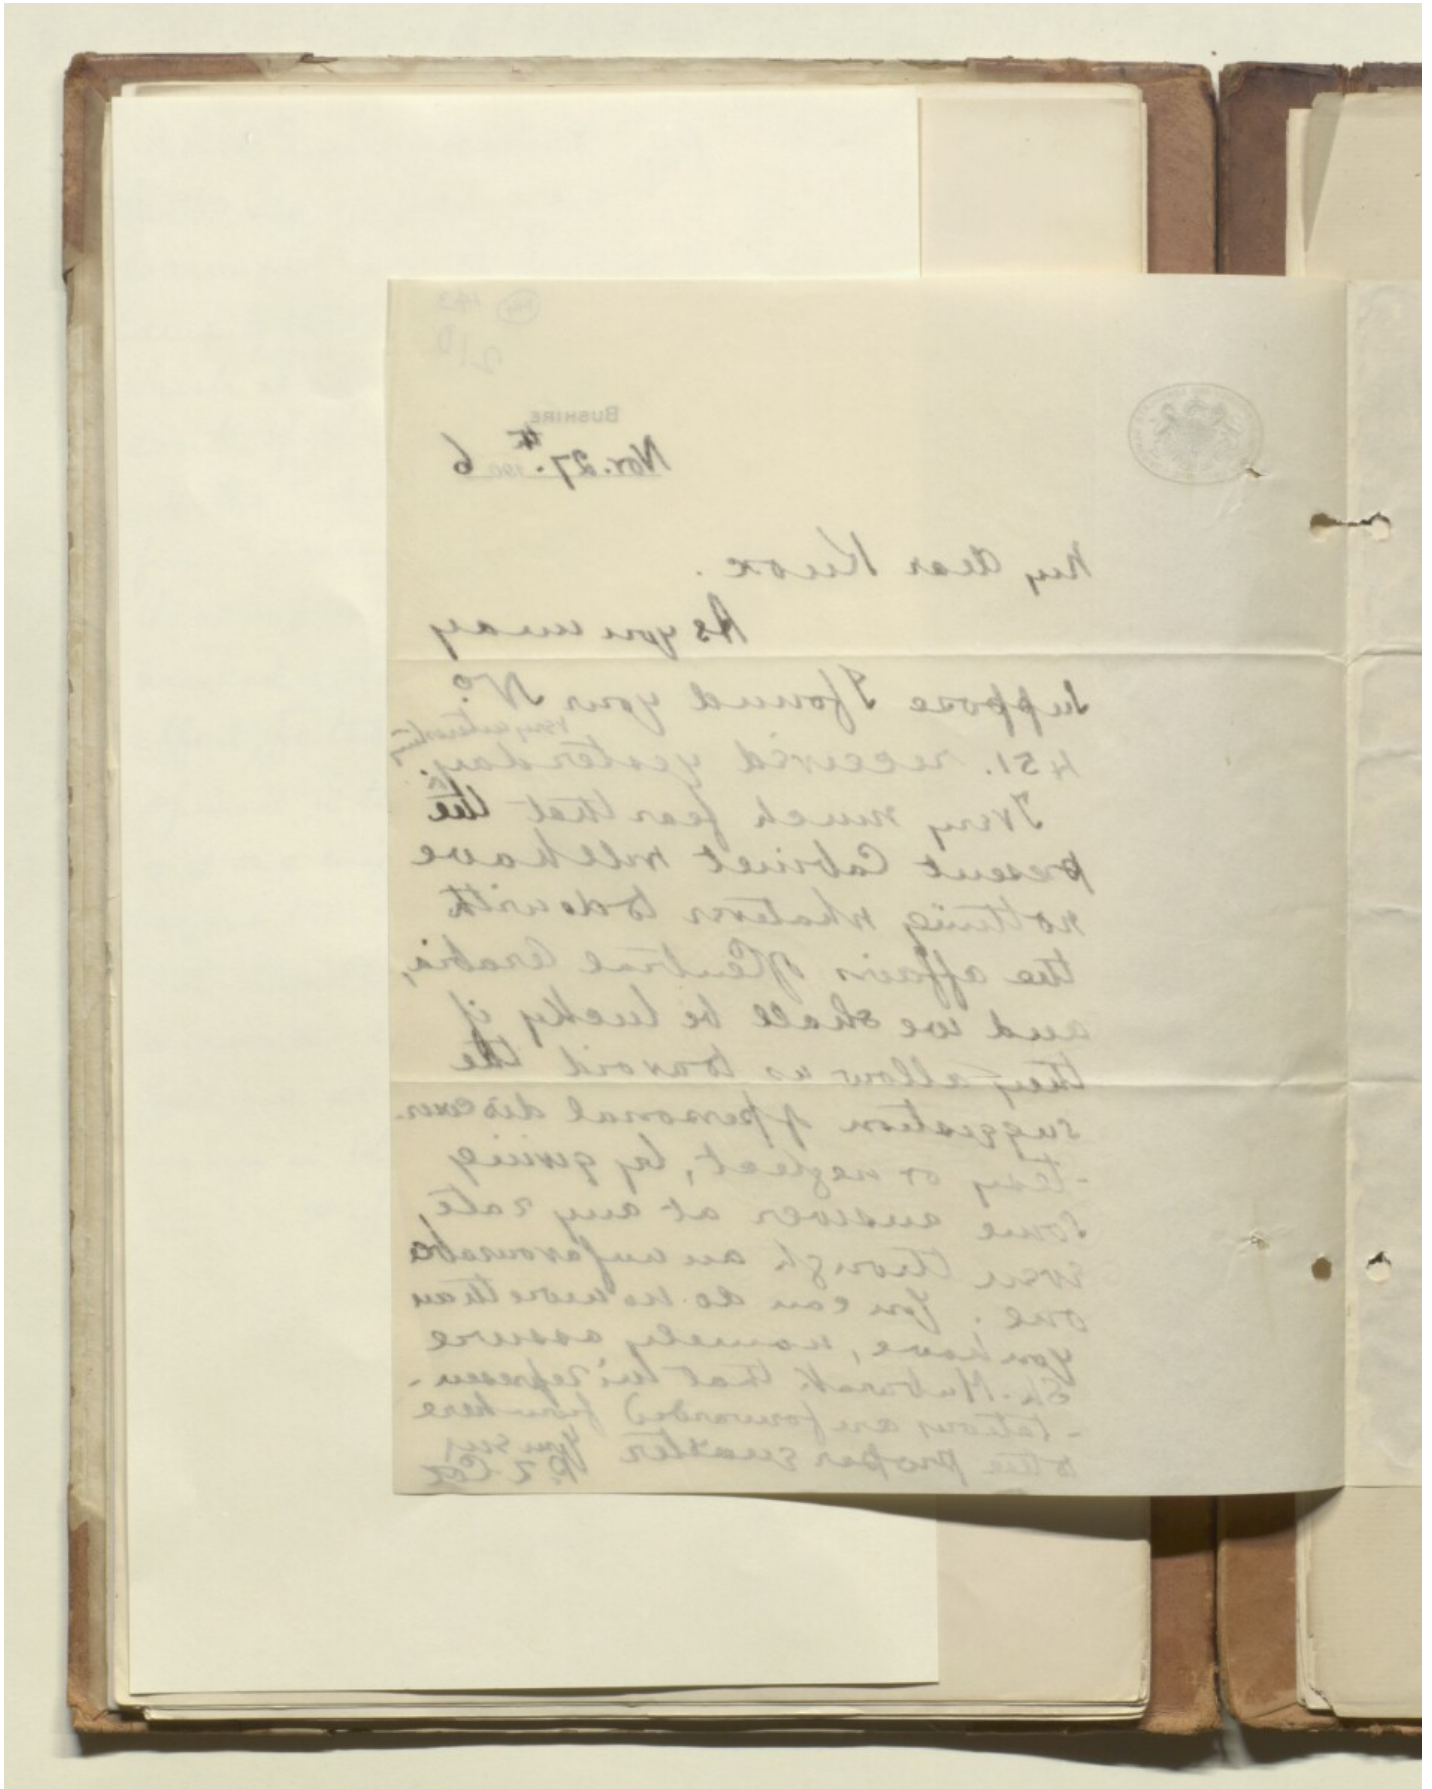 BUSHIRE
Nov. 27th. 1906
My dear Knox.
As you may
suppose I found your No.
very interesting
451. received yesterday.
I very much fear that the
present Cabinet will have
nothing whatever to do with
the affairs of Central Arabia,
and we shall be lucky if
they allow us to avoid the
suggestion of personal discour-
-tesy or neglect, by giving
some answer at any rate,
even though an unfavourable
one. You can do no more than
you have, namely assure
Sh. Mubarak that his represen-
-tations are forwarded from here
to the proper quarter
Yrs
P. Z. Cox